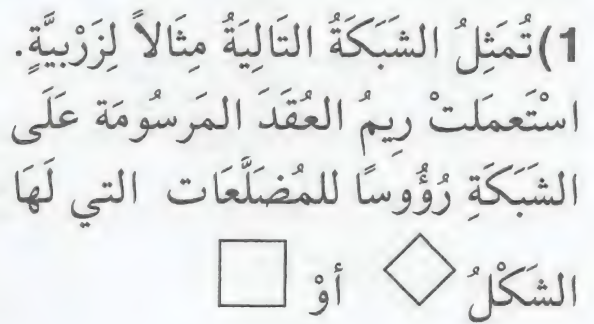 1) تُمَثِلُ الشَبَكَةُ التَالِيَةُ مِثَالاً لِزَرْبِيَّةٍ.
اسْتَعمَلتْ رِيمُ العُقَدَ المَرسُومَة عَلَى
الشَبَكَةِ رُؤُوسًا للمُضَلَّعَات التي لَهَا
الشَكْلُ أوْ